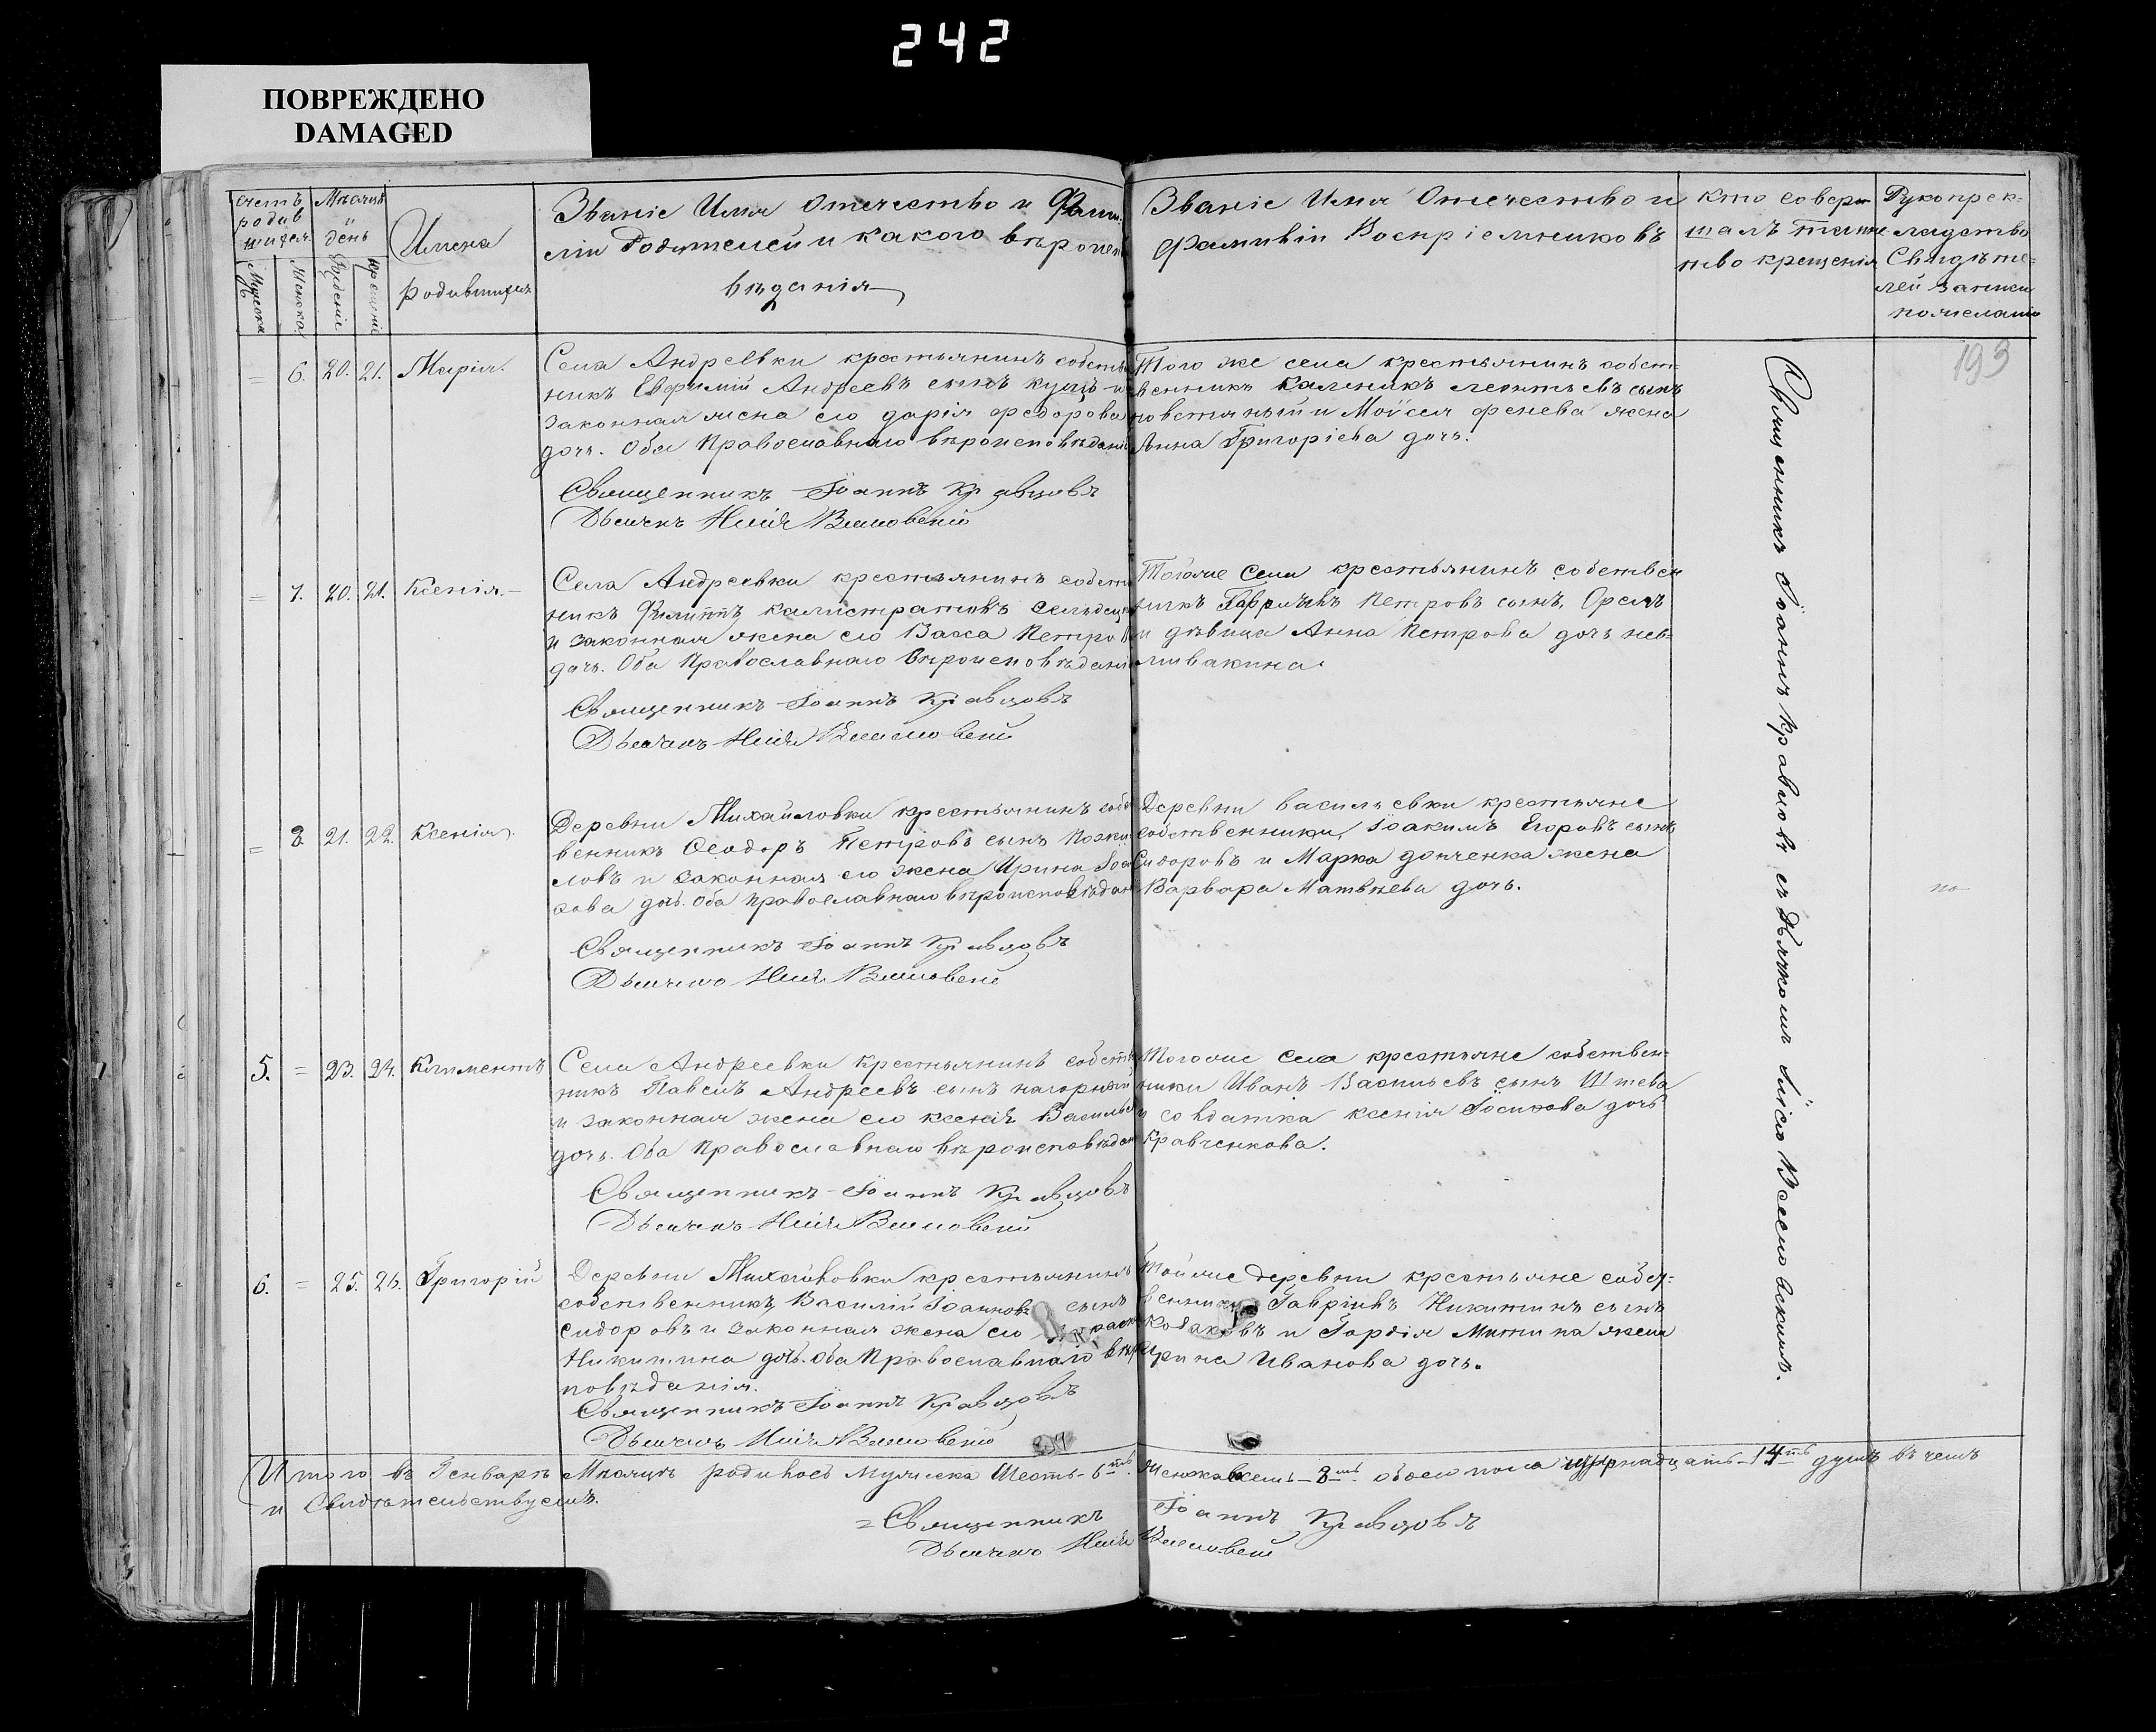 242
ПОВРЕЖДЕНО
DAMAGED
193
счетъ родив шихся
Мѣсяцъ и день
Имена родившихся
Званіе Имя Отечество и Фами
ліи Родителей и какого вѣроисп
вѣданія
Званіе Имя Отечество и
Фамиліи Воспріемниковъ
кто совер
шалъ таин
тво крещенія
Рукоприк
ладство
Свидѣте-
лей записи
по желанію
6. 20. 21. Марія.
Села Андреевки крестьянинъ собств
никъ Евфимій Андреевъ сынъ
законная жена его Дарія Федорова
дочь. Оба Православнаго вѣроисповѣдані
Священникъ Іоаннъ Кравцовъ
Дьячекъ
Того же села крестьянинъ собст-
венникъ Калиникъ Леонтьевъ сынъ
и Моисея жена
Анна Григоріева дочь.
7. 20. 21. Ксенія.
Села Андреевки крестьянинъ собст
никъ Филиппъ Калистратовъ
и законная жена его Васса Петров
дочь. Оба Православнаго Вѣроисповѣдані
Священникъ Іоаннъ Кравцовъ
Дьячекъ
Тогоже Села крестьянинъ собствен
никъ Гавріилъ Петровъ сынъ, Орелъ
и дѣвица Анна Петрова дочь
8. 21. 22. Ксенія.
Деревни Михайловки крестьянинъ собс
венникъ Феодоръ Петровъ сынъ
ловъ и законная его жена Ирина
дочь. Оба православнаго вѣроисповѣдан
Священникъ Іоаннъ Кравцовъ
Дьячекъ
Деревни Васильевки крестьяне
собственники, Іоакимъ Егоровъ сынъ
Сидоровъ и Марка Донченка жена
Варвара Матвѣева дочь.
по
5. = 23. 24. Климентъ
Села Андреевки Крестьянинъ собств
никъ Павелъ Андреевъ сынъ Нагорный
и законная жена его Ксенія Василье
дочь. Оба Православнаго вѣроисповѣдан
Священникъ Іоаннъ Кравцовъ
Дьячекъ
Тогоже Села крестьяне собствен-
ники Иванъ Васильевъ сынъ
и солдатка Ксенія Іосифова дочь
Кравченкова.
6. = 25. 26. Григорій
Деревни Михайловки крестьянинъ
собственникъ Василій Іоанновъ сынъ
Сидоровъ и законная жена его
Никитина дочь. Оба Православнаго вѣр
повѣданія.
Священникъ Іоаннъ Кравцовъ
Дьячекъ
Тойже деревни крестьяне собст-
венники Гавріилъ Никитинъ сынъ
и Гордія Митина жена
Ирина Иванова дочь.
Священникъ Іоаннъ Кравцовъ съ Дьячкомъ
Итого въ Генварѣ Мѣсяцѣ родилось мужеска Шесть - 6ть. женска восемь - 8мь. обоего пола четырнадцать - 14ть душъ въ чемъ
и Свидѣтельствуемъ.
Священникъ Іоаннъ Кравцовъ
Дьячекъ